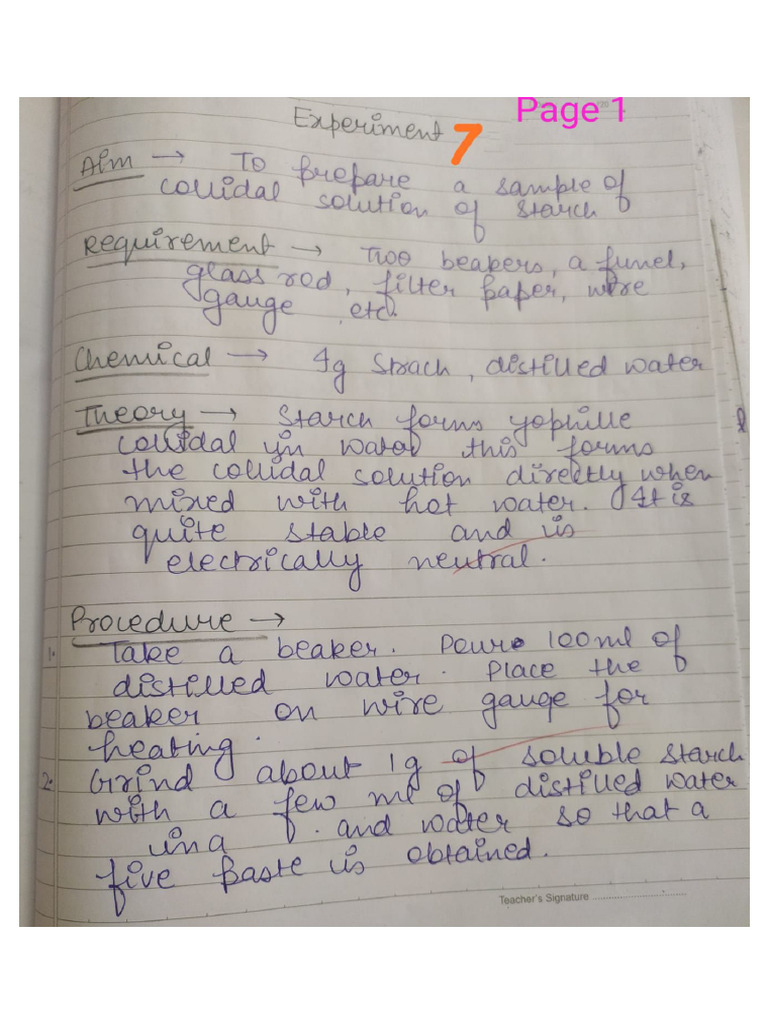 Page 1
Experiment 7
Aim → To prepare a sample of
collidal solution of starch
Requirement → Two beakers, a funel,
glass rod, filter paper, wire
gauge, etc.
Chemical → 1g Strach, distilled water
Theory → Starch forms yophille
collidal in water this forms
the collidal solution directly when
mixed with hot water. It is
quite stable and is
electrically neutral.
Procedure →
1. Take a beaker. Pour 100ml of
distilled water. Place the
beaker on wire gauge for
heating.
2. Grind about 1g of soluble starch
with a few ml of distilled water
in a and water so that a
five paste is obtained.
Teacher's Signature